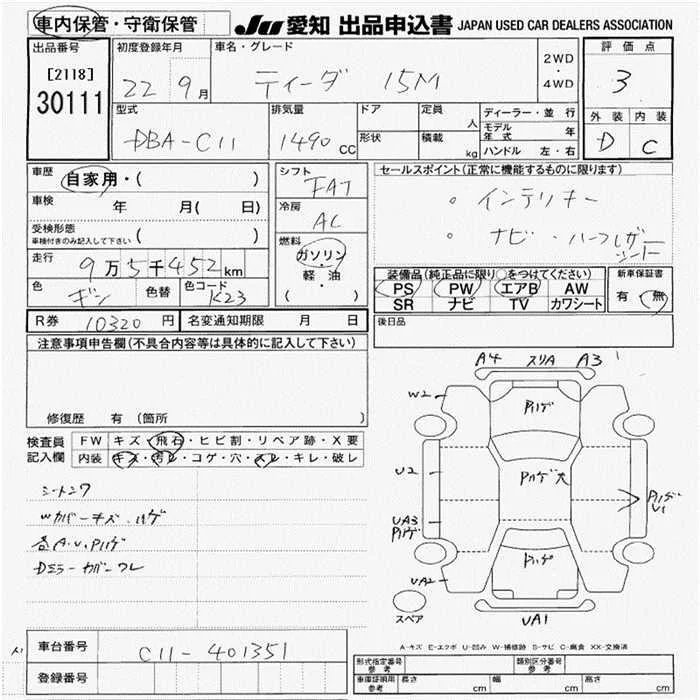 車内保管・守衛保管
JU 愛知 出品申込書 JAPAN USED CAR DEALERS ASSOCIATION
出品番号 初度登録年月 車名・グレード 評価点
[2118]
30111
22 9月 ティーダ 15M 2WD・4WD 3
型式 排気量 ドア 定員 人 ディーラー・並行 外装 内装
DBA-C11 1490 CC 形状 積載 kg モデル年式 年 D C
ハンドル 左・右
車歴 自家用・( )
シフト FAT
セールスポイント(正常に機能するものに限ります)
車検 年 月( 日)
冷房 AC
。インテリキー
受検形態 車検付きのみ記入して下さい ( )
。ナビ・ハーフレザーシート
走行 9万5千452km
燃料 ガソリン・軽・油 ( )
装備品(純正品に限り○をつけてください) 新車保証書
色 ギン 色替 色コード K23
PS PW エアB AW 有・無
SR ナビ TV カワシート
R券 10320円 名変通知期限 月 日
後日品
注意事項申告欄(不具合内容等は具体的に記入して下さい)
修復歴 有 (箇所 )
検査員記入欄 FW キズ・飛石・ヒビ割・リペア跡・X要
内装 キズ・汚レ・コゲ・穴・スレ・キレ・破レ
シートシワ
Wカバーキズ、ハゲ
各A.U.Pハゲ
Dミラーカバーワレ
A4 スリA A3
W2 Pハゲ
U2 Pハゲ大 Pハゲ U1
UA3 Pハゲ
UA2 Pハゲ
スペア UA1
A-キズ E-エクボ U-凹み W-補修跡 S-サビ C-腐食 XX-交換済
車台番号 C11-401351
登録番号
形式指定番号 参考 類別区分番号 参考
車庫証明用 参考 長さ cm 幅 cm 高さ cm